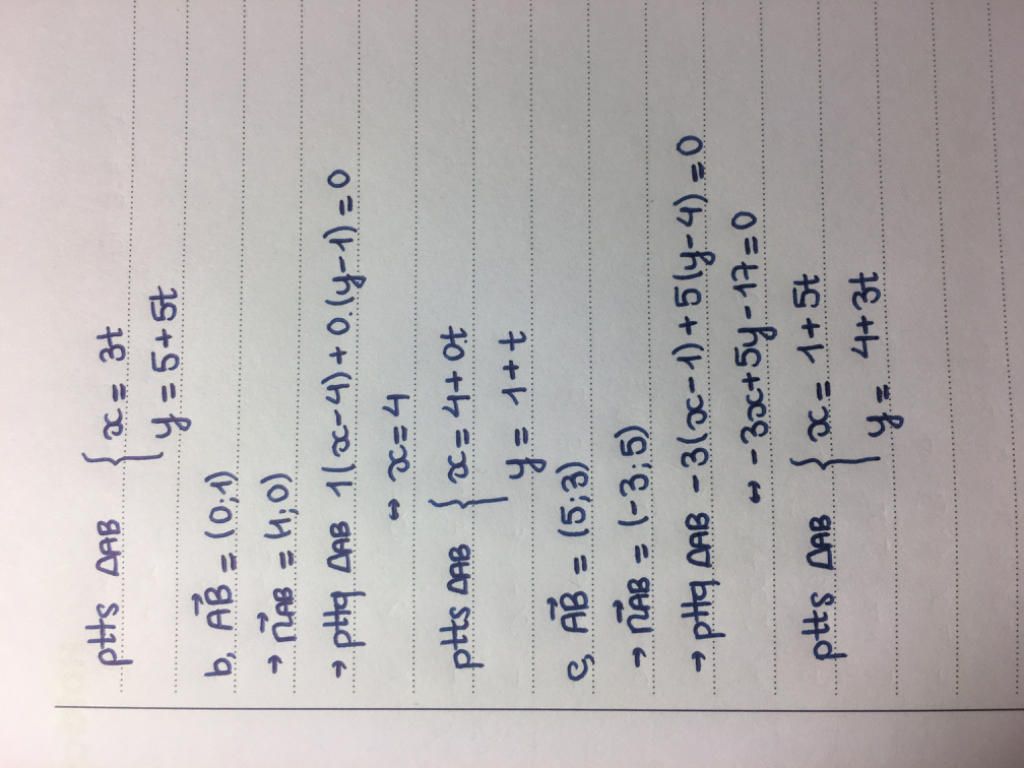 ptts ΔAB { x = 3t
y = 5+5t
b, A͞B⃗ = (0;1)
→ n⃗AB = (1;0)
→ pttq ΔAB 1(x-4)+0.(y-1)=0
↔ x=4
ptts ΔAB { x=4+0t
y = 1+t
c, AB⃗ = (5;3)
→ n⃗AB = (-3;5)
→ pttq ΔAB -3(x-1)+5(y-4)=0
↔ -3x+5y-17=0
ptts ΔAB { x=1+5t
y = 4+3t